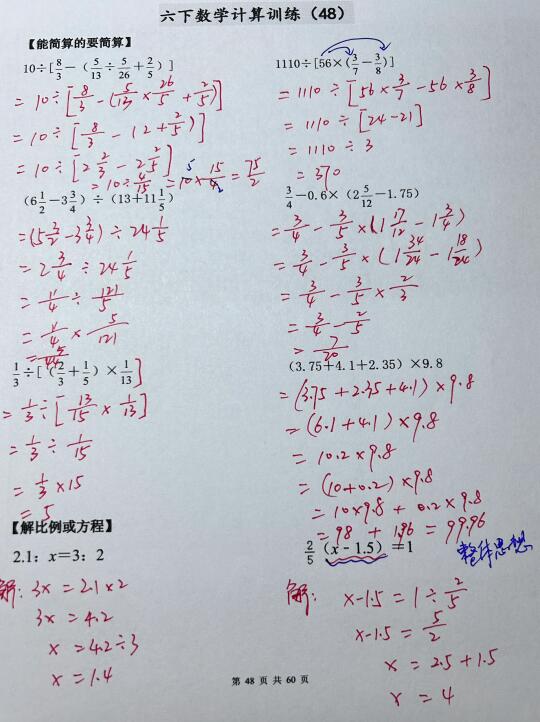 六下数学计算训练（48）
【能简算的要简算】
10÷[8/3－（5/13÷5/26＋2/5）]
= 10÷[8/3 - (5/13×26/5+2/5)]
= 10÷[8/3 - (2+2/5)]
= 10÷[2 2/3 - 2 2/5]
= 10÷4/15 = 10×15/4 = 75/2
5 2
1110÷[56×（3/7－3/8）]
= 1110÷[56×3/7-56×3/8]
= 1110÷[24-21]
= 1110÷3
= 370
（6 1/2－3 3/4）÷（13+11 1/5）
=(5 3/2-3 3/4)÷24 1/5
= 2 3/4÷24 1/5
= 11/4÷121/5
= 11/4×5/121
= 5/44
3/4－0.6×（2 5/12－1.75）
= 3/4 - 3/5×(1 17/12 - 1 3/4)
= 3/4 - 3/5×(1 34/24 - 1 18/24)
= 3/4 - 3/5×2/3
= 3/4 - 2/5
= 7/20
1/3÷[（2/3＋1/5）×1/13]
= 1/3÷[13/15×1/13]
= 1/3÷1/15
= 1/3×15
= 5
（3.75＋4.1＋2.35）×9.8
=(3.75+2.35+4.1)×9.8
=(6.1+4.1)×9.8
= 10.2×9.8
=(10+0.2)×9.8
= 10×9.8+0.2×9.8
= 98 + 1.96 = 99.96
【解比例或方程】
2.1：x＝3：2
解：3x = 2.1×2
3x = 4.2
x = 4.2÷3
x = 1.4
2/5（x－1.5）=1
整体思想
解：x-1.5 = 1÷2/5
x-1.5 = 5/2
x = 2.5+1.5
x = 4
第 48 页 共 60 页